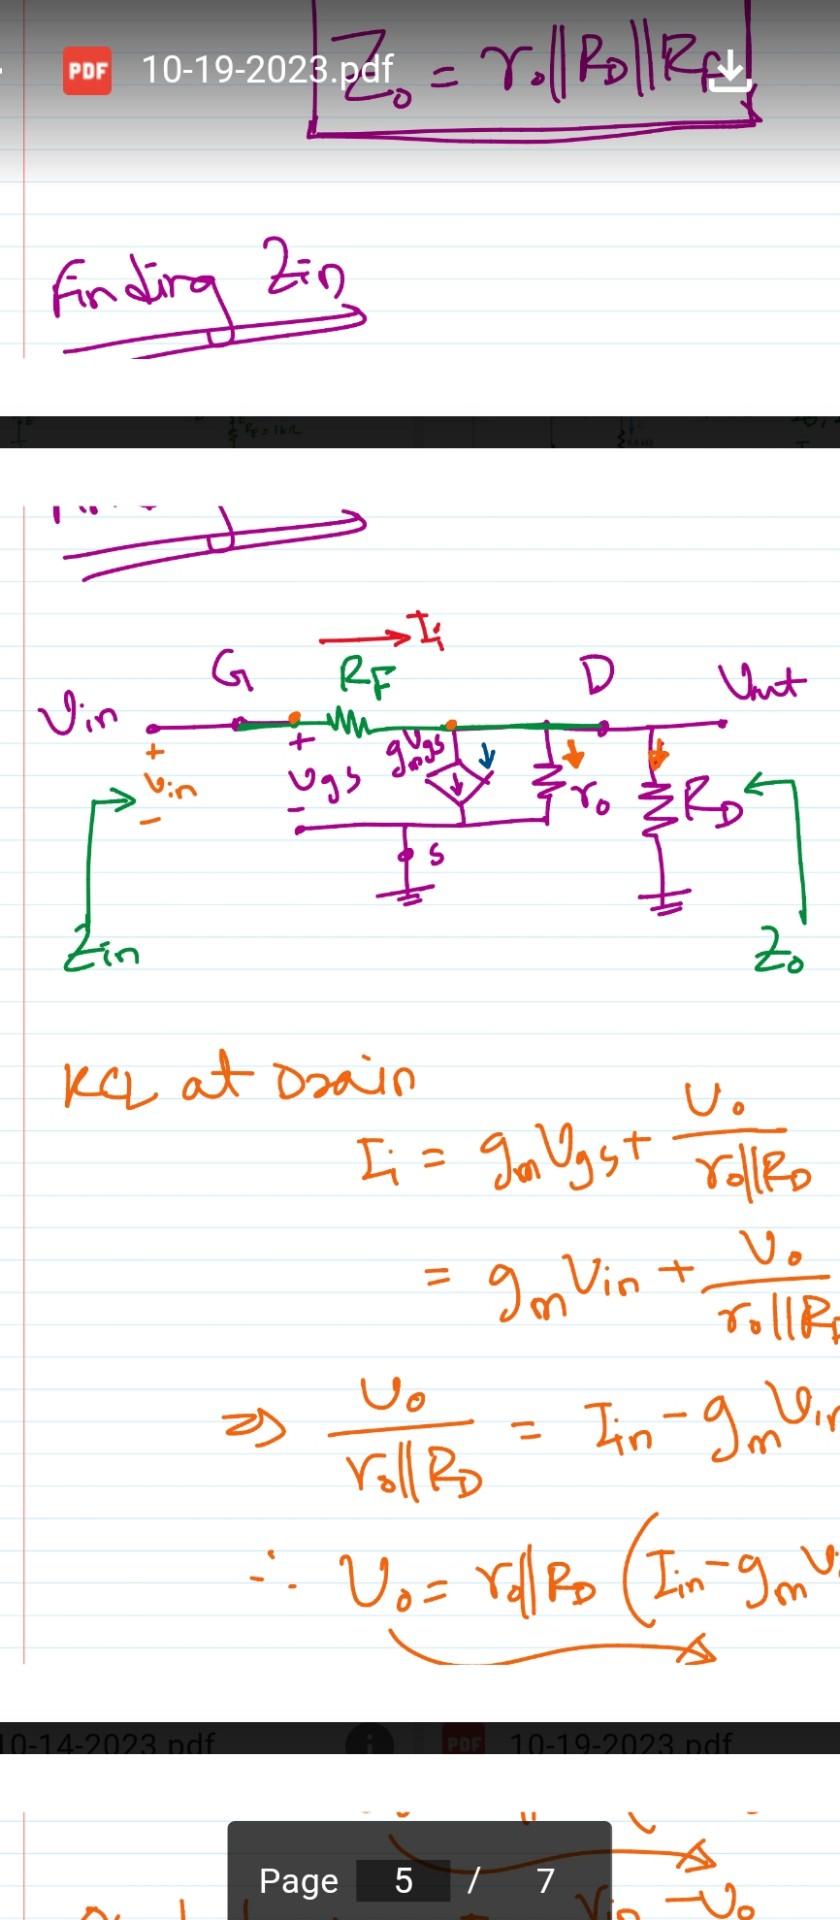 PDF 10-19-2023.pdf
Z₀ = r₀||R_D||R_F
Finding Zin
I_i
G R_F D Vout
Vin
+ + g_m V_gs
Vin V_gs r₀ R_D
- -
S
Zin Z₀
KCL at Drain
I_i = g_m V_gs + V₀ / r₀||R_D
= g_m Vin + V₀ / r₀||R_D
⇒ V₀ / r₀||R_D = Iin - g_m Vin
∴ V₀ = r₀||R_D (Iin - g_m V
10-14-2023.pdf i PDF 10-19-2023.pdf
Page 5 / 7
- V₀